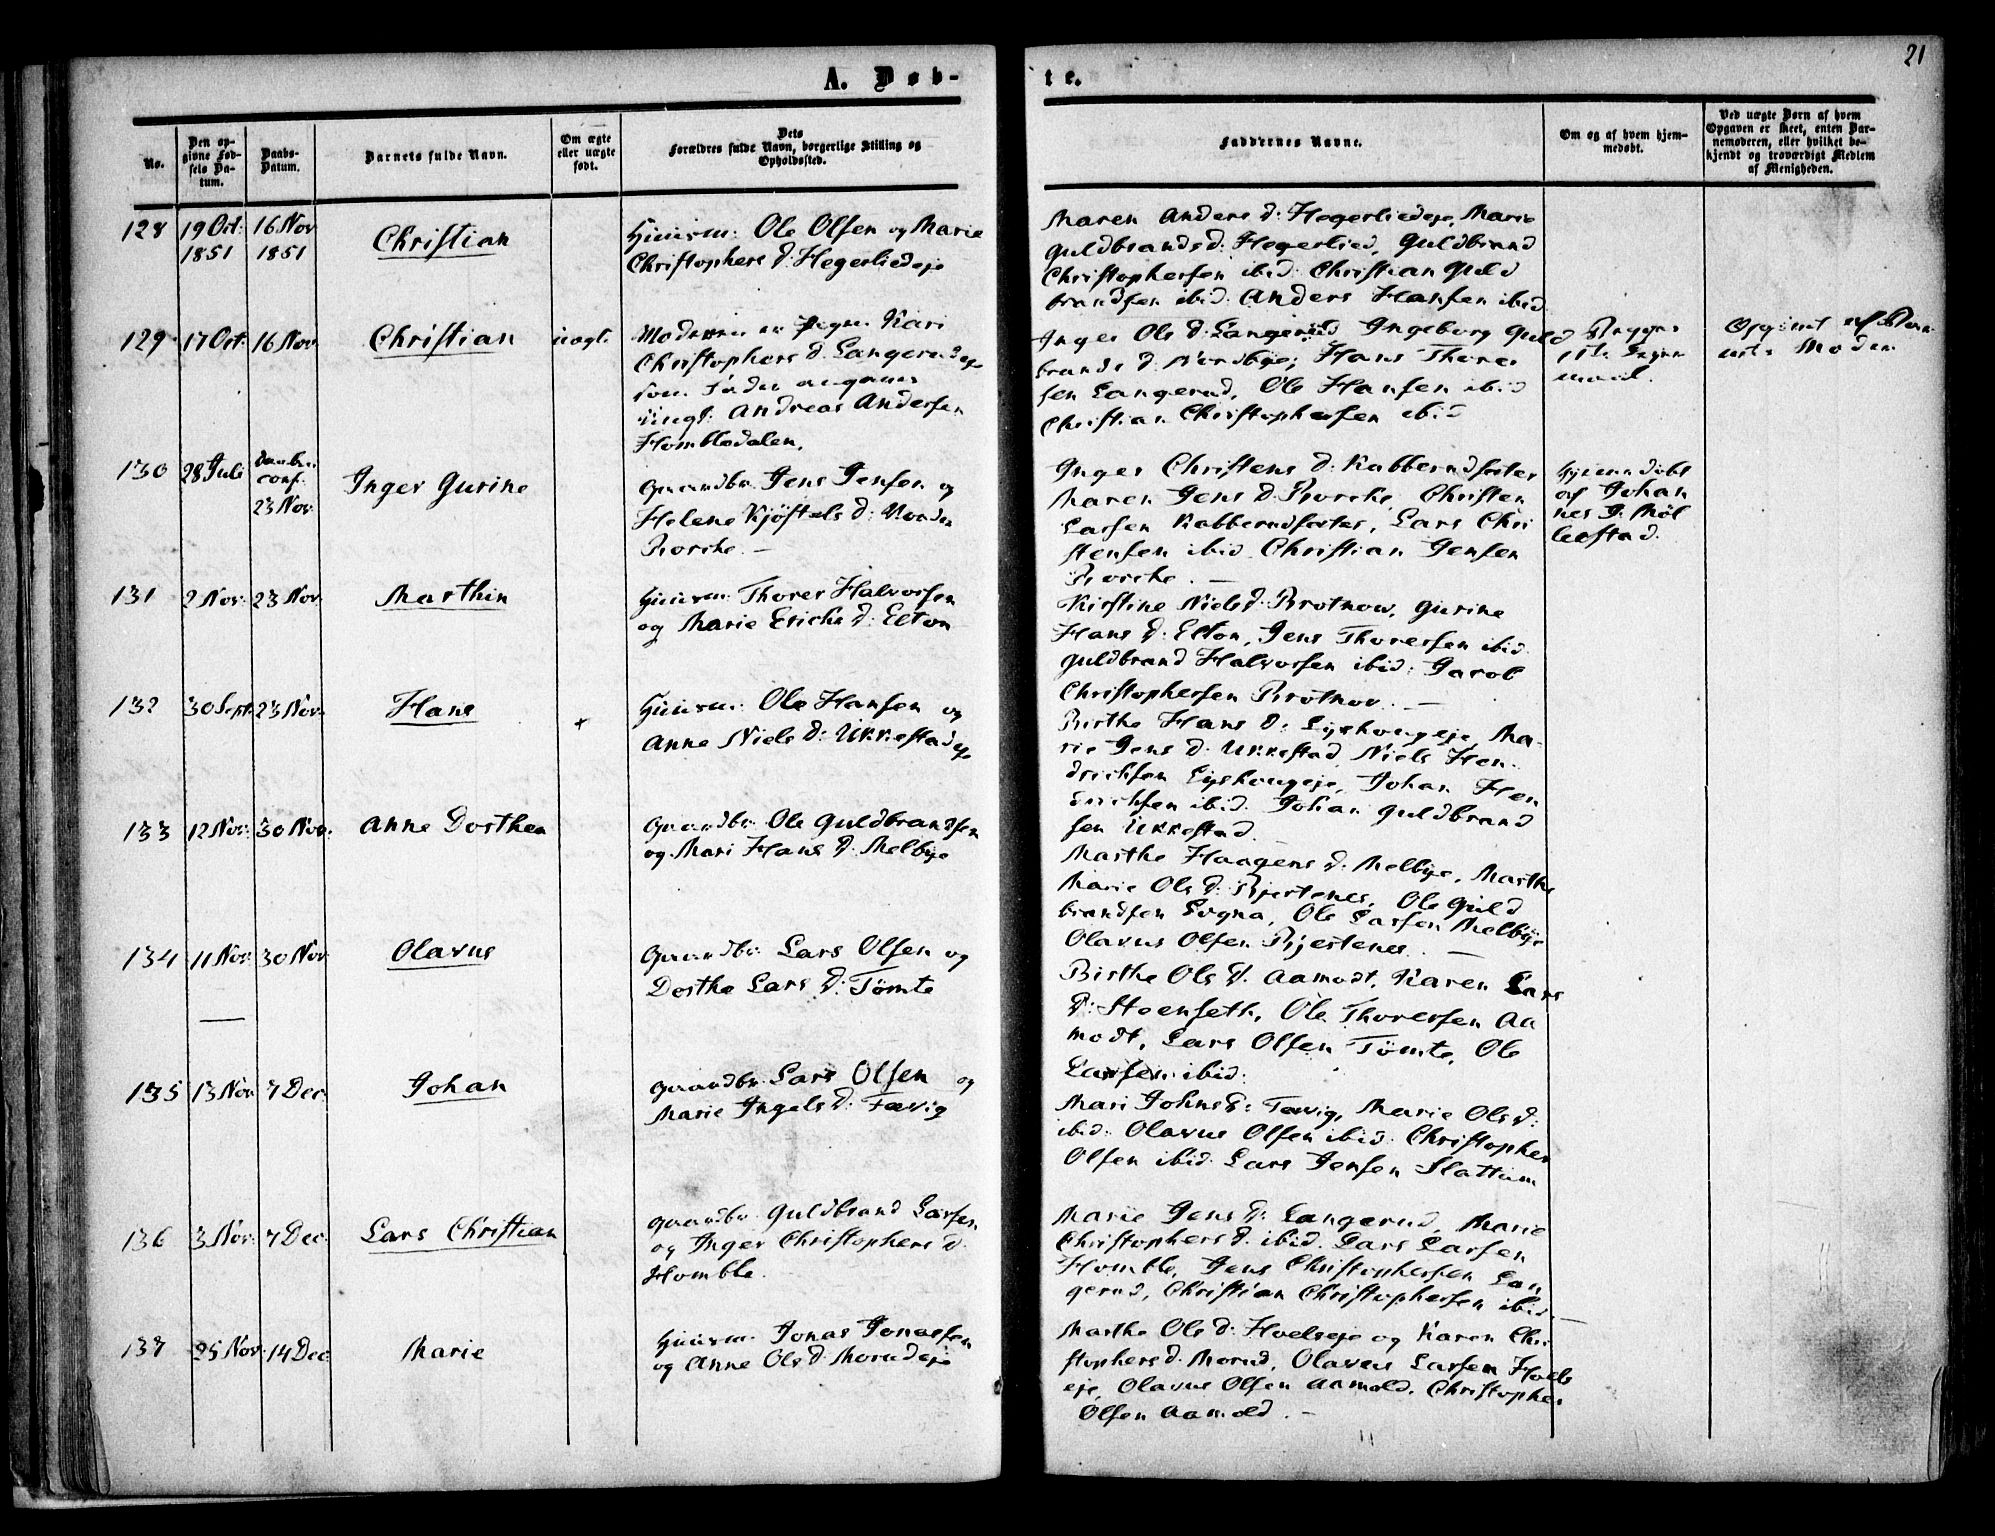 21
A. Døb-
te.
No.
Den op-
givne Fød-
sels Da-
tum.
Daabs-
Datum.
Barnets fulde Navn.
Om ægte
eller uægte
født.
Dets
Forældres fulde Navn, borgerlige Stilling og
Opholdssted.
Faddernes Navne.
Om og af hvem hjem-
medøbt.
Ved uægte Børn af hvem
Opgaven er skeet, enten Bar-
nemoderen, eller hvilket be-
kjendt og troværdigt Medlem
af Menigheden.
128
19 Oct:
1851
16 Nov
1851
Christian
Huusm: Ole Olsen og Marie
Christophers d: Hegerliedeje
Maren Anders d: Hegerliedeje, Marie
Guldbrands d: Hegerlied, Guldbrand
Christophersen ibid: Christian Guld
brandsen ibid: Anders Hansen ibid
129
17 Oct:
16 Nov
Christian
uægt:
Moderen er Pigen Kari
Christophers d: Langerudeje
som Fader angaves
Ungk: Andreas Andersen
Hombledalen.
Inger Ols d: Langerud Ingeborg Guld
brands d: Nordbye; Hans Thores
sen Langerud, Ole Hansen ibid
Christian Christophersen ibid
Opgivet af Barn
Moder
130
28 Juli
conf.
23 Nov
Inger Gurine
Gaardbr: Jens Jensen og
Helene Kjøstels d: Nordre
Borche. —
Inger Christens d: Kabberudfoster
Maren Jens d: Borche, Christen
Larsen Kabberudfoster, Lars Chri
stensen ibid. Christian Jensen
Borche. —
Hjemmedøbt
af Johan
nes J: Møl
lerstad.
131
2 Nov:
23 Nov
Marthin
Huusm: Thorer Halvorsen
og Marie Erichs d: Elton
Kirstine Niels d: Brotnow, Gurine
Hans d: Elton, Jens Thoresen ibid.
Guldbrand Halvorsen ibid: Jacob
Christophersen Brotnov. —
132
30 Sept:
23 Nov.
Hans
+
Huusm: Ole Hansen og
Anne Niels d: Ukkestadeje
Birthe Hans d: Lyshougeje, Ma-
rie Jens d: Ukkestad, Niels Hen-
drichsen Lyshougeje, Johan Hen
drichsen ibid. Johan Guldbrand
sen Ukkestad.
133
12 Nov:
30 Nov:
Anne Dorthea
Gaardbr: Ole Guldbrandsen
og Mari Hans d: Melbye
Marthe Haagens d: Melbye, Marthe
Marie Ols d: Bjertenes, Ole Guld
brandsen Sogna, Ole Larsen Melbye
Olavus Olsen Bjertenes. —
134
11 Nov:
30 Nov
Olavus
Gaardbr: Lars Olsen og
Dorthe Lars d: Tømte
Birthe Ols d: Aamodt, Karen Lars
d: Steenseth, Ole Thoresen Aa
modt, Lars Olsen Tømte, Ole
Larsen ibid:
135
13 Nov
7 Dec:
Johan
Gaardbr: Lars Olsen og
Marie Ingels d: Favig
Mari Johns d: Favig, Marie Ols d:
ibid: Olavus Olsen ibid: Christopher
Olsen ibid: Lars Jensen Slattum
136
3 Nov:
7 Dec.
Lars Christian
Gaardbr: Guldbrand Larsen
og Inger Christophers d.
Homble.
Marie Jens d: Langerud, Marie
Christophers d. ibid. Lars Larsen
Homble, Jens Christophersen Lan
gerud, Christian Christophersen ibid.
137
25 Nov:
14 Dec:
Marie
Huusm: Jonas Jonassen
og Anne Ols d: Morudeje
Marthe Ols d: Hoelseje og Karen Chri
stophers d. Morud, Olavus Larsen Hoels
eje, Olavus Olsen Aamold. Christopher
Olsen Aamold. —